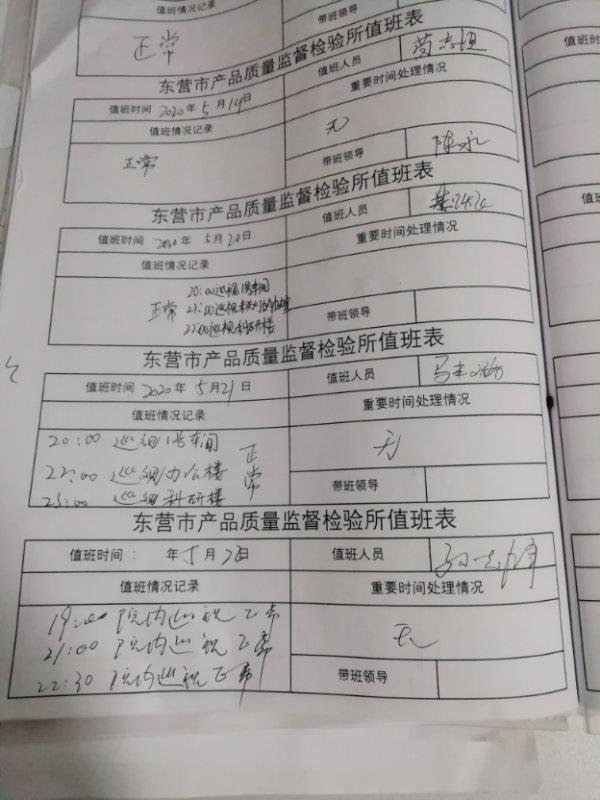 值班情况记录 带班领导
正常
值班
东营市产品质量监督检验所值班表
值班时间 2020年5月19日 值班人员
值班情况记录 重要时间处理情况
正常 无
带班领导
东营市产品质量监督检验所值班表
值班时间 2020年5月20日 值班人员
值班情况记录 重要时间处理情况
正常 20:00巡视1号车间
22:00巡视科研楼
无
带班领导
值
东营市产品质量监督检验所值班表
值班时间 2020年5月21日 值班人员
值班情况记录 重要时间处理情况
20:00 巡视1号车间
22:00 巡视办公楼
23:00 巡视科研楼
正常
无
带班领导
东营市产品质量监督检验所值班表
值班时间: 年5月 日 值班人员
值班情况记录 重要时间处理情况
19:00 院内巡视正常
21:00 院内巡视正常
22:30 院内巡视正常
无
带班领导